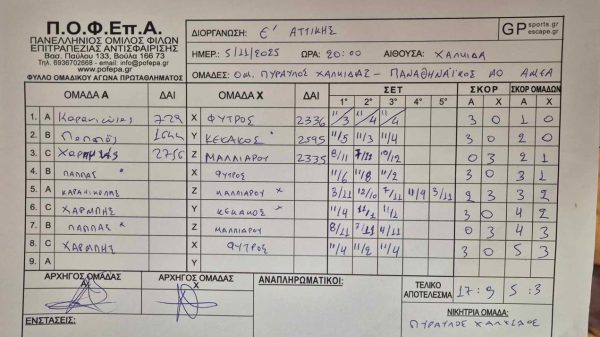 Π.Ο.Φ.Επ.Α.
ΠΑΝΕΛΛΗΝΙΟΣ ΟΜΙΛΟΣ ΦΙΛΩΝ
ΕΠΙΤΡΑΠΕΖΙΑΣ ΑΝΤΙΣΦΑΙΡΙΣΗΣ
Βασ. Παύλου 133, Βούλα 166 73
Τηλ. 6936702668 - email: info@pofepa.gr
http://www.pofepa.gr
ΦΥΛΛΟ ΟΜΑΔΙΚΟΥ ΑΓΩΝΑ ΠΡΩΤΑΘΛΗΜΑΤΟΣ
ΔΙΟΡΓΑΝΩΣΗ: Ε' ΑΤΤΙΚΗΣ
GP sports.gr escape.gr
ΗΜΕΡ.: 5/11/2025 ΩΡΑ: 20:00 ΑΙΘΟΥΣΑ: ΧΑΛΚΙΔΑ
ΟΜΑΔΕΣ: ΟΜ. ΠΥΡΑΥΛΟΣ ΧΑΛΚΙΔΑΣ - ΠΑΝΑΘΗΝΑΪΚΟΣ ΑΟ ΑΜΕΑ
ΟΜΑΔΑ Α ΔΑΙ ΟΜΑΔΑ Χ ΔΑΙ ΣΕΤ ΣΚΟΡ ΣΚΟΡ ΟΜΑΔΩΝ
1° 2° 3° 4° 5° Α Χ Α Χ
1. Α 729 Χ ΦΥΤΡΟΣ 2336 11/3 11/4 11/4 3 0 1 0
2. Β Παππάς 1644 Υ ΚΕΚΑΚΟΣ 2595 11/5 11/3 11/4 3 0 2 0
3. C Χαρμπής 2756 Ζ ΜΑΛΛΙΑΡΟΥ 2335 8/11 7/11 10/12 0 3 2 1
4. Β ΠΑΠΠΑΣ Χ ΦΥΤΡΟΣ 11/6 11/8 11/2 3 0 3 1
5. Α ΚΑΡΑΝΙΚΟΛΗΣ Ζ ΜΑΛΛΙΑΡΟΥ 3/11 12/10 7/11 11/9 3/11 2 3 3 2
6. C ΧΑΡΜΠΗΣ Υ ΚΕΚΑΚΟΣ 11/4 11/1 11/2 3 0 4 2
7. Β ΠΑΠΠΑΣ Ζ ΜΑΛΛΙΑΡΟΥ 8/11 7/11 4/11 0 3 4 3
8. C ΧΑΡΜΠΗΣ Χ ΦΥΤΡΟΣ 11/4 11/2 11/4 3 0 5 3
9. Α Υ
ΑΡΧΗΓΟΣ ΟΜΑΔΑΣ Α ΑΡΧΗΓΟΣ ΟΜΑΔΑΣ Χ ΑΝΑΠΛΗΡΩΜΑΤΙΚΟΙ: ΤΕΛΙΚΟ ΑΠΟΤΕΛΕΣΜΑ 17:9 5:3
ΝΙΚΗΤΡΙΑ ΟΜΑΔΑ:
ΕΝΣΤΑΣΕΙΣ: ΠΥΡΑΥΛΟΣ ΧΑΛΚΙΔΟΣ